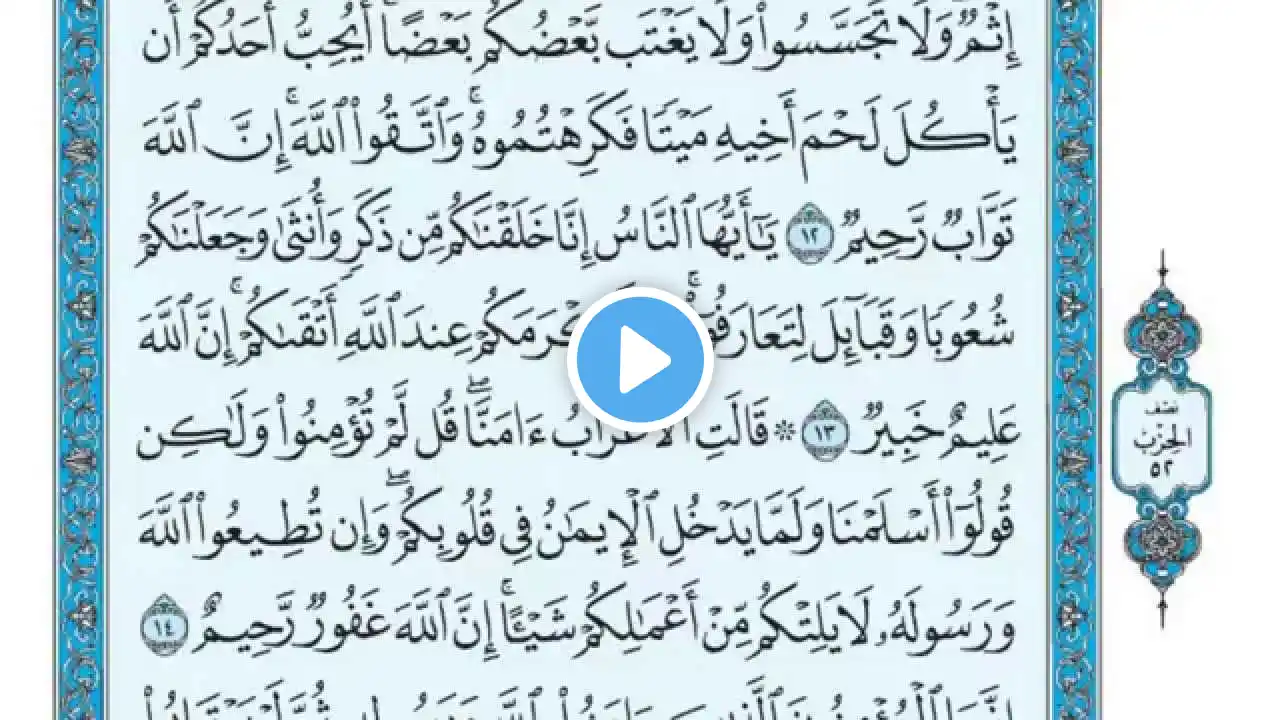 إِثْمٌ وَلَا تَجَسَّسُوا۟ وَلَا يَغْتَب بَّعْضُكُم بَعْضًا ۚ أَيُحِبُّ أَحَدُكُمْ أَن
يَأْكُلَ لَحْمَ أَخِيهِ مَيْتًا فَكَرِهْتُمُوهُ ۚ وَٱتَّقُوا۟ ٱللَّهَ ۚ إِنَّ ٱللَّهَ
تَوَّابٌ رَّحِيمٌ ١٢ يَـٰٓأَيُّهَا ٱلنَّاسُ إِنَّا خَلَقْنَـٰكُم مِّن ذَكَرٍ وَأُنثَىٰ وَجَعَلْنَـٰكُمْ
شُعُوبًا وَقَبَآئِلَ لِتَعَارَفُوٓا۟ ۚ كْرَمَكُمْ عِندَ ٱللَّهِ أَتْقَىٰكُمْ ۚ إِنَّ ٱللَّهَ
عَلِيمٌ خَبِيرٌ ١٣ ۞ قَالَتِ ٱلْأَعْرَابُ ءَامَنَّا ۖ قُل لَّمْ تُؤْمِنُوا۟ وَلَـٰكِن
قُولُوٓا۟ أَسْلَمْنَا وَلَمَّا يَدْخُلِ ٱلْإِيمَـٰنُ فِى قُلُوبِكُمْ ۖ وَإِن تُطِيعُوا۟ ٱللَّهَ
وَرَسُولَهُۥ لَا يَلِتْكُم مِّنْ أَعْمَـٰلِكُمْ شَيْـًٔا ۚ إِنَّ ٱللَّهَ غَفُورٌ رَّحِيمٌ ١٤
نصف
الحِزْب
٥٢